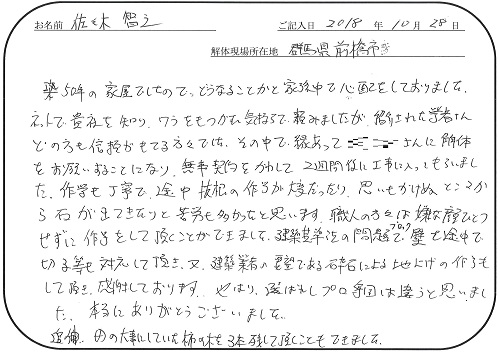 お名前 佐々木 智之 ご記入日 2018 年 10 月 28 日
解体現場所在地 群馬県前橋市
築50年の家屋でしたので、どうなることかと家族中で心配をしておりました。
ネットで貴社を知り、ワラをもつかむ気持ちで頼みましたが、紹介された業者さん
どの方も信頼がもてる方々では、その中で縁あって さんに解体
をお願いすることになり、無事契約をかわして2週間後に工事に入ってもらいまし
た。作業も丁寧で、途中抜根の作業が大変だったり、思いもかけぬところか
ら石がでてきたりと苦労も多かったと思います。職人の方々は嫌な顔ひとつ
せずに作業をして頂くことができました。建築基準法の問題でブロック壁を途中で
切る等も対応して頂き、又、建築業者の要望である砕石による地上げの作業も
して頂き、感謝しております。やはり、選ばれしプロ集団は違うと思いまし
た。本当にありがとうございました。
追伸、母の大事にしていた柿の木を3本残して頂くこともできました。